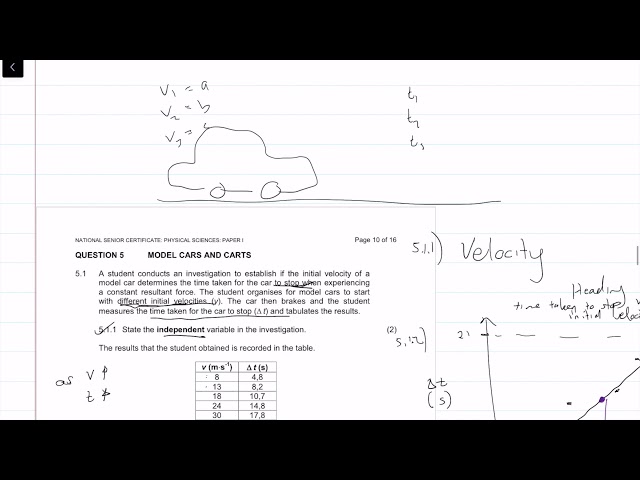 V₁ = a
t₁
V₂ = b
t₂
V₃ =
t₃
NATIONAL SENIOR CERTIFICATE: PHYSICAL SCIENCES: PAPER I
Page 10 of 16
QUESTION 5 MODEL CARS AND CARTS
5.1 A student conducts an investigation to establish if the initial velocity of a
model car determines the time taken for the car to stop when experiencing
a constant resultant force. The student organises for model cars to start
with different initial velocities (v). The car then brakes and the student
measures the time taken for the car to stop (Δ t) and tabulates the results.
5.1.1 State the independent variable in the investigation.
(2)
The results that the student obtained is recorded in the table.
v (m·s⁻¹) Δ t (s)
8 4,8
13 8,2
18 10,7
24 14,8
30 17,8
as V
t
5.1.1) Velocity
Heading
time taken to stop v
initial veloci
5.1.2)
21
Δt
(s)